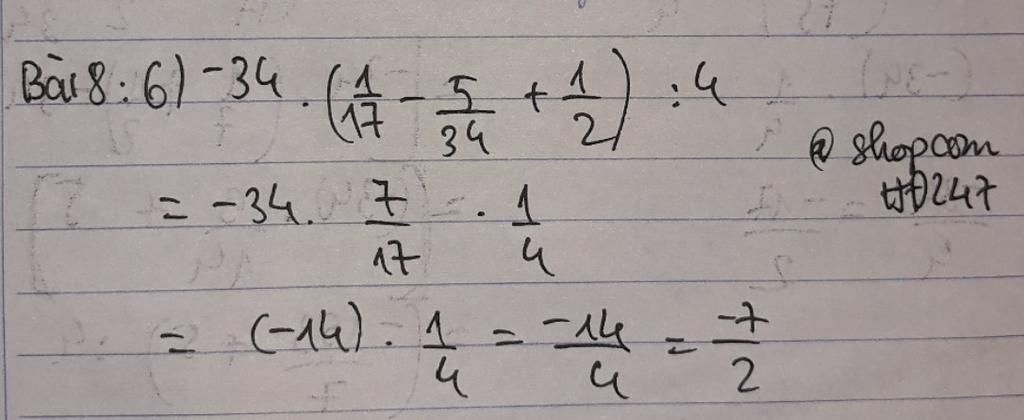 Bài 8: 6) -34 . (1/17 - 5/34 + 1/2) : 4
@shopcom
HĐ247
= -34. 7/17 . 1/4
= (-14) . 1/4 = -14/4 = -7/2